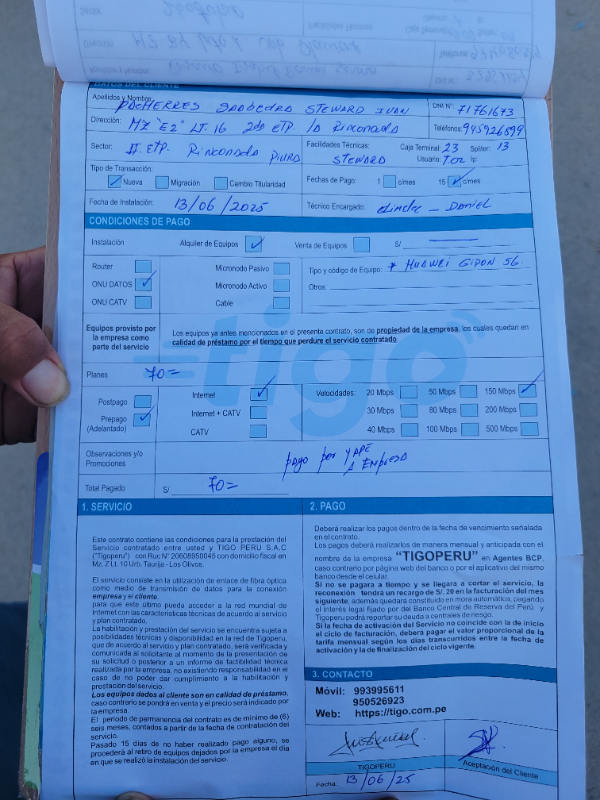 DATOS DEL CLIENTE
Apellidos y Nombre: PACHERRES SAAVEDRA STEWARD IVAN DNI N°: 71761673
Dirección: MZ "E2" LT. 16 2da ETP La Rinconada Teléfonos: 945926899
Sector: II ETP. Rinconada PIURA Facilidades Técnicas: Caja Terminal: 23 Spliter: 13
STEWARD Usuario:
Tipo de Transacción:
Nueva Migración Cambio Titularidad Fechas de Pago: 1 c/mes 15 c/mes
Fecha de Instalación: 13/06/2025 Técnico Encargado: - Daniel
CONDICIONES DE PAGO
Instalación Alquiler de Equipos Venta de Equipos S/
Router Micronodo Pasivo Tipo y código de Equipo: * HUAWEI GIPON 5G.
ONU DATOS Micronodo Activo Otros
ONU CATV Cable
Equipos provisto por la empresa como parte del servicio
Los equipos ya antes mencionados en el presente contrato, son de propiedad de la empresa, los cuales quedan en calidad de préstamo por el tiempo que perdure el servicio contratado.
tigo
Planes 70=
Postpago Internet Velocidades: 20 Mbps 50 Mbps 150 Mbps
Prepago (Adelantado) Internet + CATV 30 Mbps 80 Mbps 200 Mbps
CATV 40 Mbps 100 Mbps 500 Mbps
Observaciones y/o Promociones pago por YAPE
A Empresa
Total Pagado S/ 70=
1. SERVICIO
Este contrato contiene las condiciones para la prestación del
Servicio contratado entre usted y TIGO PERU S.A.C
("Tigoperu") con Ruc N° 20608958045 con domicilio fiscal en
Mz. Z Lt. 10 Urb. Taurija - Los Olivos.
El servicio consiste en la utilización de enlace de fibra óptica
como medio de transmisión de datos para la conexión
empresa y el cliente.
para que este último pueda acceder a la red mundial de
Internet con las características técnicas de acuerdo al servicio
y plan contratado.
La habilitación y prestación del servicio se encuentra sujeta a
posibilidades técnicas y disponibilidad en la red de Tigoperu,
que de acuerdo al servicio y plan contratado, será verificada y
comunicada al solicitante al momento de la presentación de
su solicitud o posterior a un informe de factibilidad técnica
realizada por la empresa, no existiendo responsabilidad en el
caso de no poder dar cumplimiento a la habilitación y
prestación del servicio.
Los equipos dados al cliente son en calidad de préstamo,
caso contrario se pondrá en venta y el precio será indicado por
la empresa.
El periodo de permanencia del contrato es de mínimo de (6)
seis meses, contados a partir de la fecha de contratación del
servicio.
Pasado 15 días de no haber realizado pago alguno, se
procederá al retiro de equipos dejados por la empresa el día
en que se realizó la instalación del servicio.
2. PAGO
Deberá realizar los pagos dentro de la fecha de vencimiento señalada
en el contrato.
Los pagos deberá realizarlos de manera mensual y anticipada con el
nombre de la empresa "TIGOPERU" en Agentes BCP,
caso contrario por página web del banco o por el aplicativo del mismo
banco desde el celular.
Si no se pagara a tiempo y se llegara a cortar el servicio, la
reconexión tendrá un recargo de S/. 20 en la facturación del mes
siguiente, además quedará constituido en mora automática, pagando
el interés legal fijado por del Banco Central de Reserva del Perú y
Tigoperu podrá reportar su deuda a centrales de riesgo.
Si la fecha de activación del Servicio no coincide con la de inicio
del ciclo de facturación, deberá pagar el valor proporcional de la
tarifa mensual según los días trascurridos entre la fecha de
activación y la de finalización del ciclo vigente.
3. CONTACTO
Móvil: 993995611
950526923
Web: https://tigo.com.pe
TIGOPERU
Aceptación del Cliente
Fecha: 13/06/25